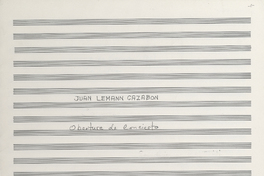 JUAN LEMANN CAZABON
Obertura de Concierto